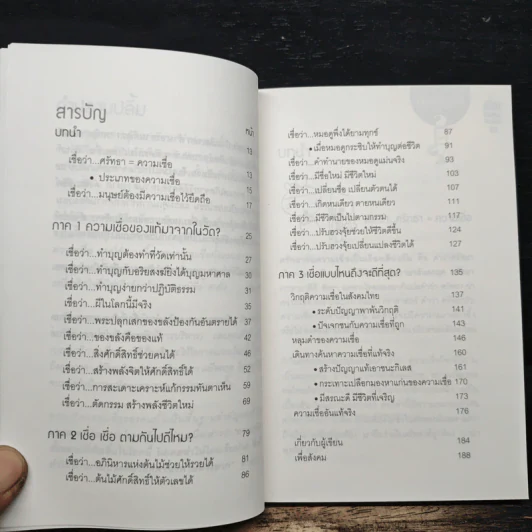 สารบัญ
หน้า
บทนำ 13
เชื่อว่า...ศรัทธา = ความเชื่อ 13
• ประเภทของความเชื่อ 15
เชื่อว่า...มนุษย์ต้องมีความเชื่อไว้ยึดถือ 17
ภาค 1 ความเชื่อของแท้มาจากในวัด? 25
เชื่อว่า...ทำบุญต้องทำที่วัดเท่านั้น 27
เชื่อว่า...ทำบุญกับอริยสงฆ์ยิ่งได้บุญมหาศาล 30
เชื่อว่า...ทำบุญง่ายกว่าปฏิบัติธรรม 31
เชื่อว่า...ผีในโลกนี้มีจริง 35
เชื่อว่า...พระปลุกเสกของขลังป้องกันอันตรายได้ 38
เชื่อว่า...ของขลังคือของแท้ 42
เชื่อว่า...สิ่งศักดิ์สิทธิ์ช่วยคนได้ 46
เชื่อว่า...สร้างพลังจิตให้ศักดิ์สิทธิ์ได้ 52
เชื่อว่า...การสะเดาะเคราะห์แก้กรรมทันตาเห็น 59
เชื่อว่า...ตัดกรรม สร้างพลังชีวิตใหม่ 69
ภาค 2 เชื่อ เชื่อ ตามกันไปดีไหม? 79
เชื่อว่า...อภินิหารแห่งต้นไม้ช่วยให้รวยได้ 81
เชื่อว่า...ต้นไม้ศักดิ์สิทธิ์ให้ตัวเลขได้ 86
เชื่อว่า...หมอดูพึ่งได้ยามทุกข์ 87
• เมื่อหมอดูกระซิบให้ทำบุญต่อชีวิต 91
เชื่อว่า...คำทำนายของหมอดูแม่นจริง 93
เชื่อว่า...มีชื่อใหม่ มีชีวิตใหม่ 103
เชื่อว่า...เปลี่ยนชื่อ เปลี่ยนตัวตนได้ 107
เชื่อว่า...เกิดหนเดียว ตายหนเดียว 111
เชื่อว่า...มีชีวิตเป็นไปตามกรรม 117
เชื่อว่า...ปรับฮวงจุ้ยช่วยให้ชีวิตดีขึ้น 124
เชื่อว่า...ปรับฮวงจุ้ยเปลี่ยนแปลงชีวิตได้ 127
ภาค 3 เชื่อแบบไหนถึงจะดีที่สุด? 135
วิกฤติความเชื่อในสังคมไทย 137
• ระดับปัญญาพาพ้นวิกฤติ 141
• ปัจเจกชนกับความเชื่อที่ถูก 143
หลุมดำของความเชื่อ 146
เดินทางค้นหาความเชื่อที่แท้จริง 160
• สร้างปัญญาแท้เอาชนะกิเลส 161
• กระเทาะเปลือกมองหาแก่นของความเชื่อ 170
• มีสรณะดี มีชีวิตที่เจริญ 173
ความเชื่ออันแท้จริง 176
เกี่ยวกับผู้เขียน 184
เพื่อสังคม 188